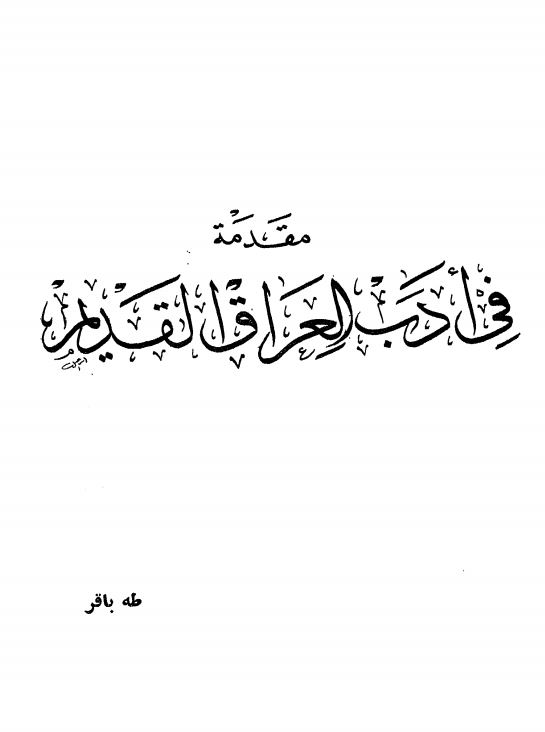 مقدمة
في أدب العراق القديم
طه باقر